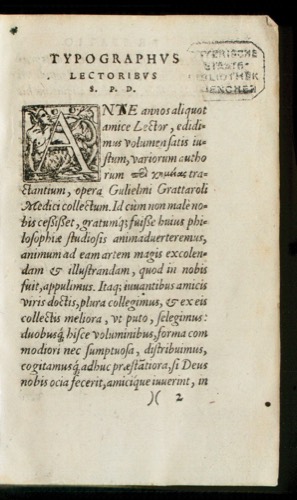 TYPOGRAPHVS
LECTORIBVS
S. P. D.
BAYERISCHE
STAATS-
BIBLIOTHEK
MUENCHEN
ANTE annos aliquot
amice Lector, edidi-
mus volumen satis iu-
stum, variorum autho
rum περὶ χημείας tra-
ctantium, opera Gulielmi Grattaroli
Medici collectum. Id cùm non male no-
bis cessißet, gratumq́; fuisse huius phi-
losophiæ studiosis animaduerteremus,
animum ad eam artem magis excolen-
dam & illustrandam, quod in nobis
fuit, appulimus. Itaq; iuuantibus amicis
viris doctis, plura collegimus, & ex eis
collectis meliora, vt puto, selegimus:
duobusq́; hisce voluminibus, forma com
modiori nec sumptuosa, distribuimus,
cogitamusq́; adhuc præstãtiora, si Deus
nobis ocia fecerit, amicique iuuerint, in
)( 2